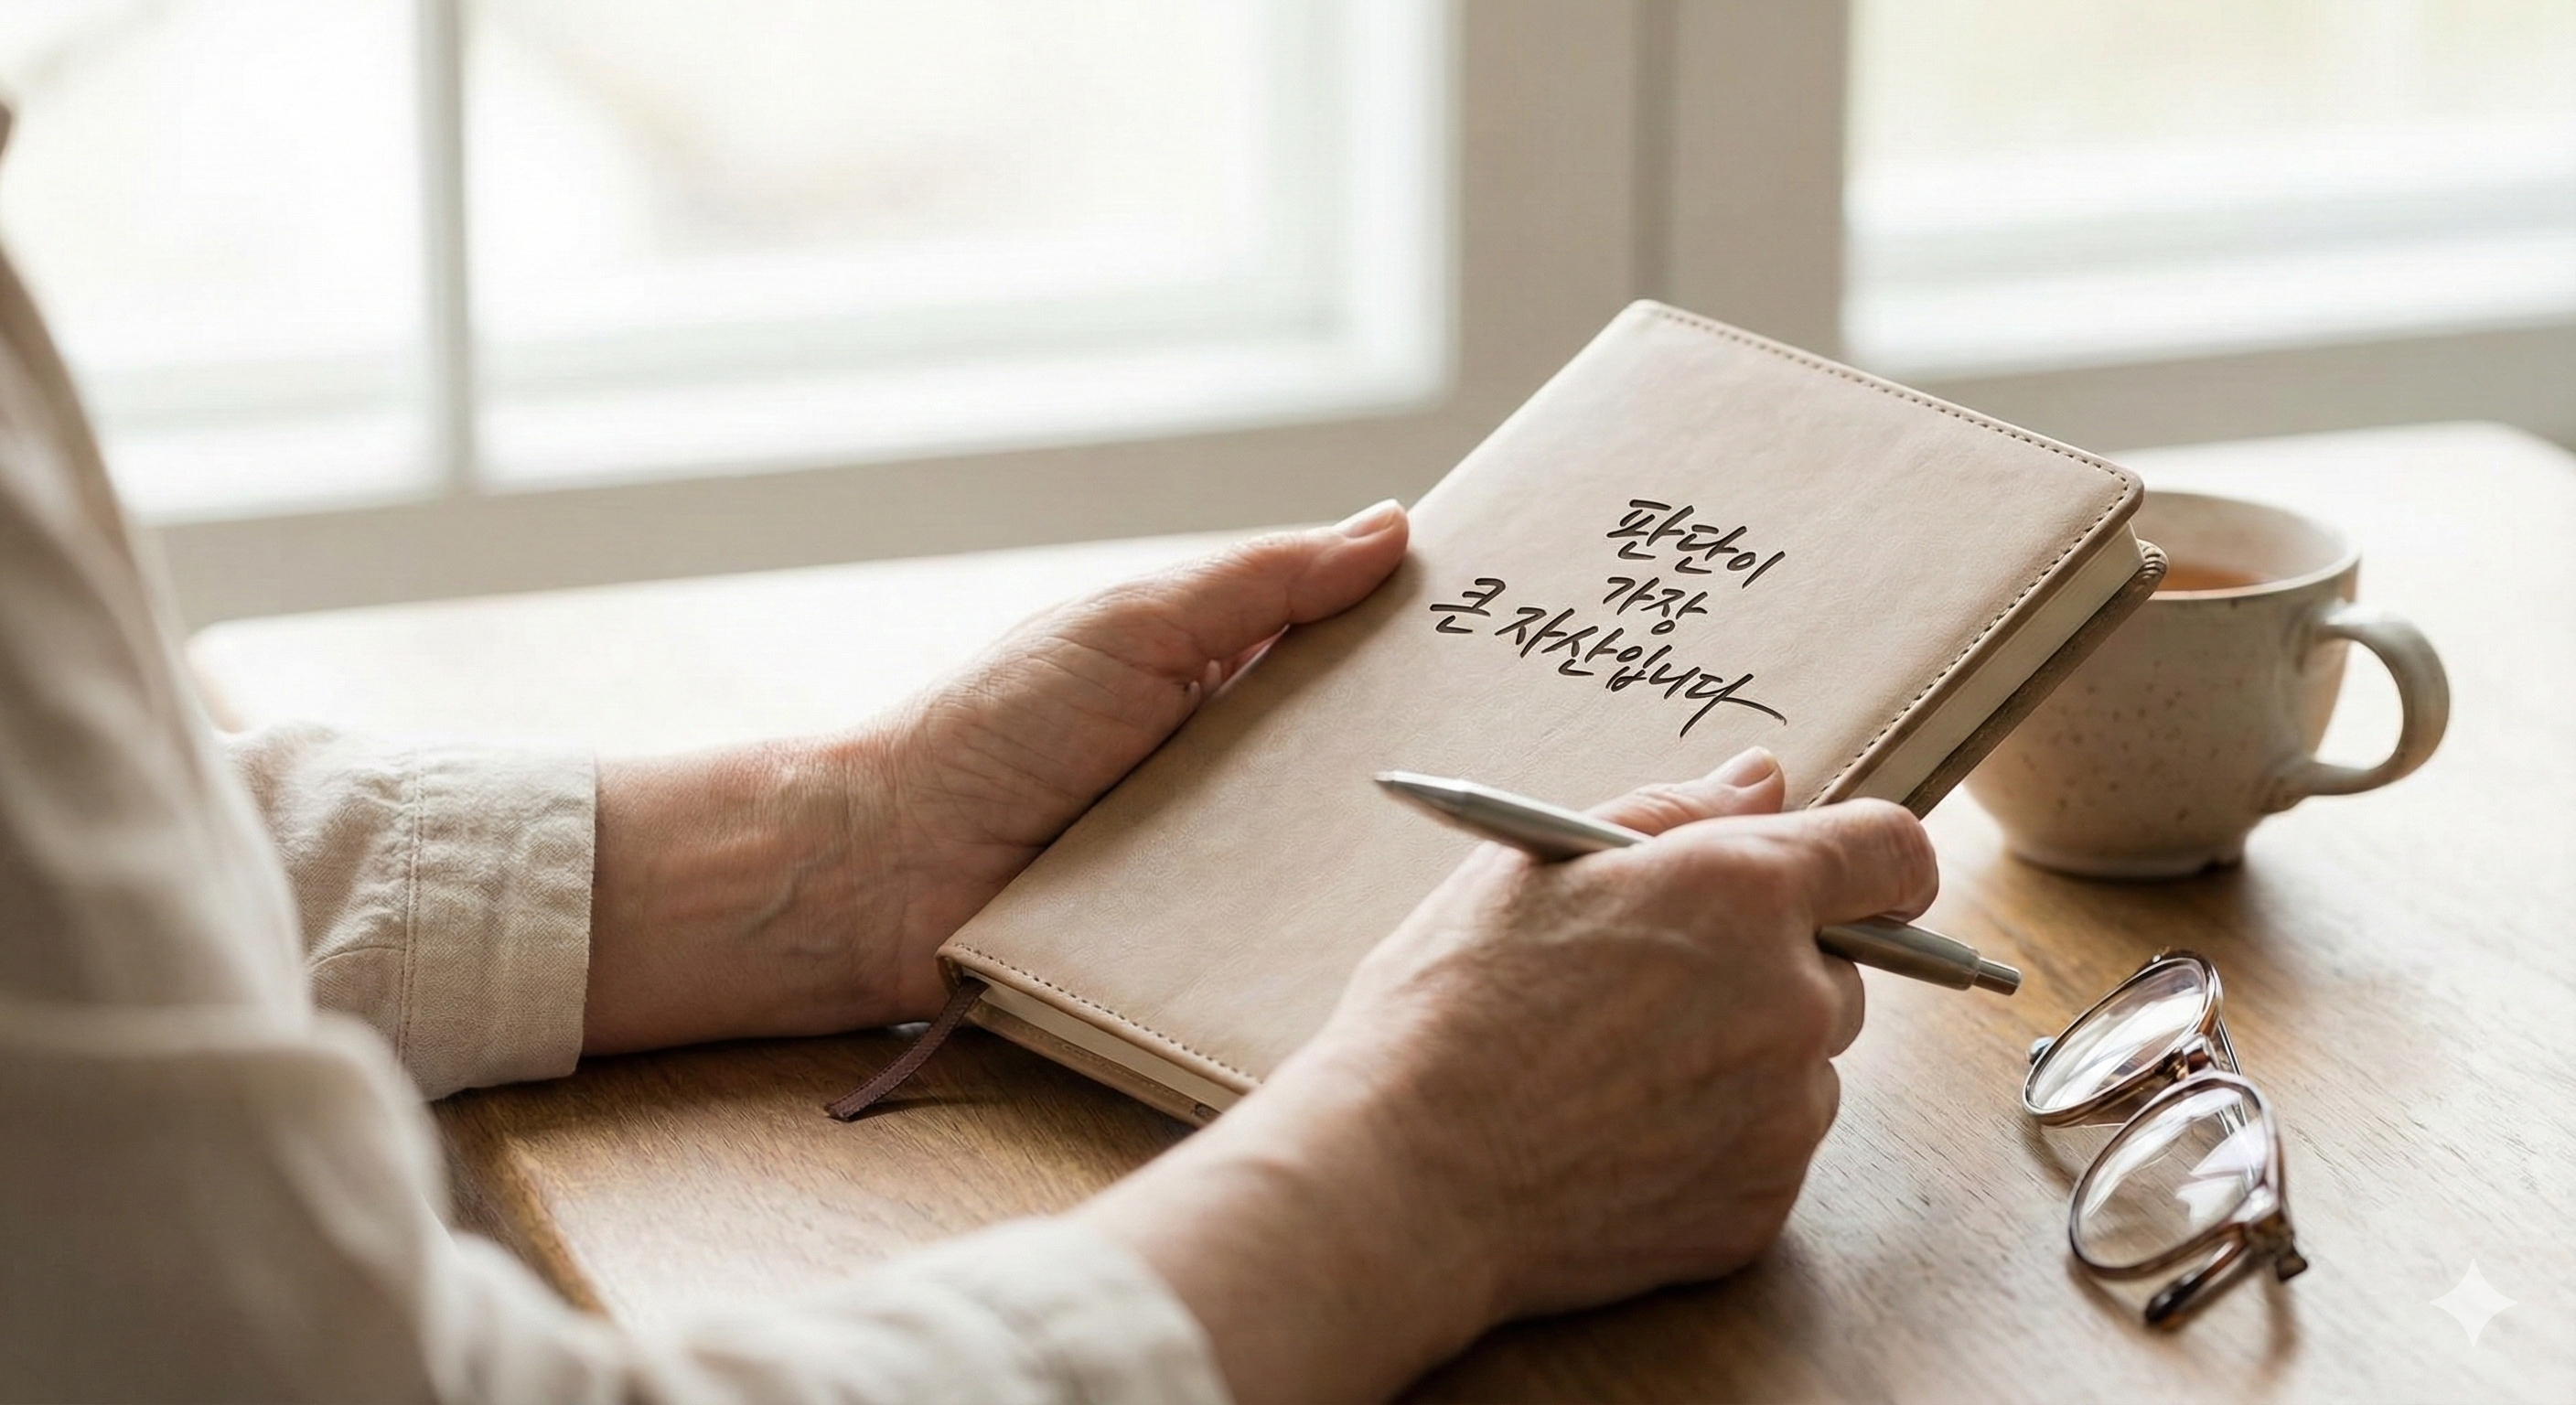 판단이
가장
큰 자산입니다